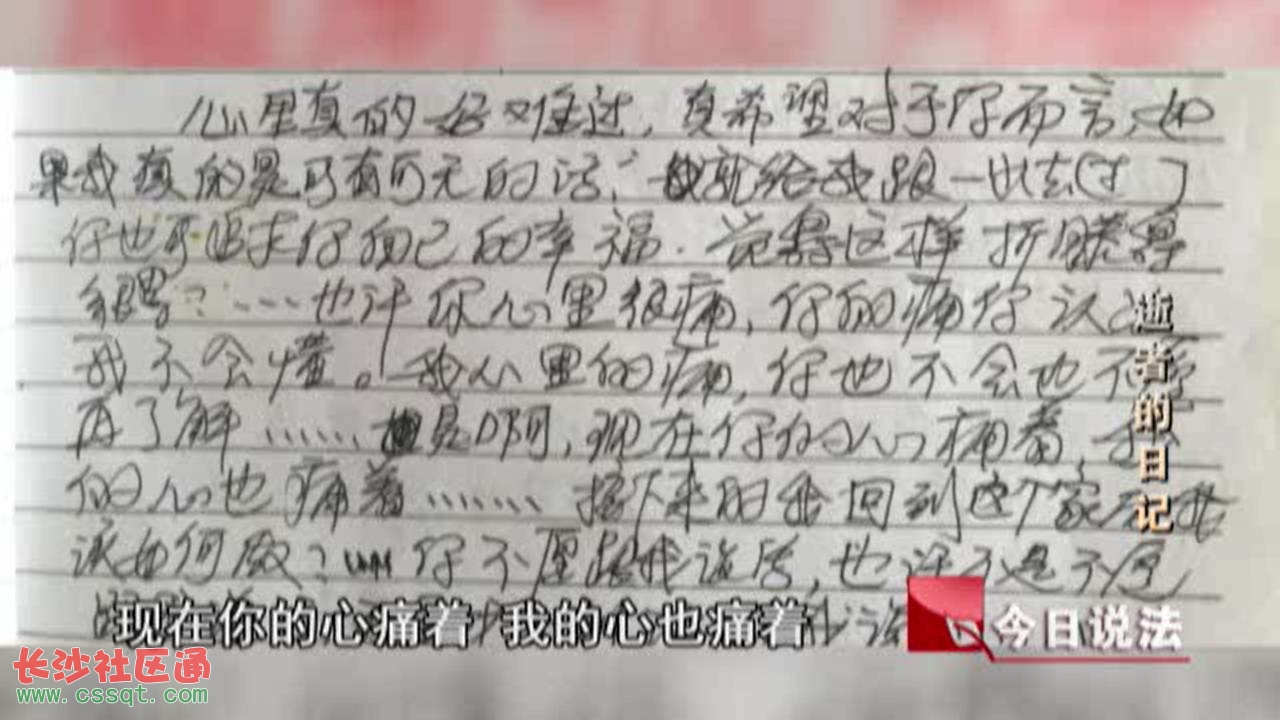 心里真的好难过，真希望对于你而言，如
果我真的是可有可无的话，我就给我跟一些去过了
你也可追求你自己的幸福．觉得这样折腾得
很累？……也许你心里很痛，你的痛你认为
我不会懂。我心里的痛，你也不会也不愿
再了解……但是啊，现在你的心痛着，我
的心也痛着……接下来的我回到这个家
该如何做？你不愿跟我说话，也许不是不愿
逝者的日记
现在你的心痛着 我的心也痛着
今日说法
长沙社区通
www.cssqt.com